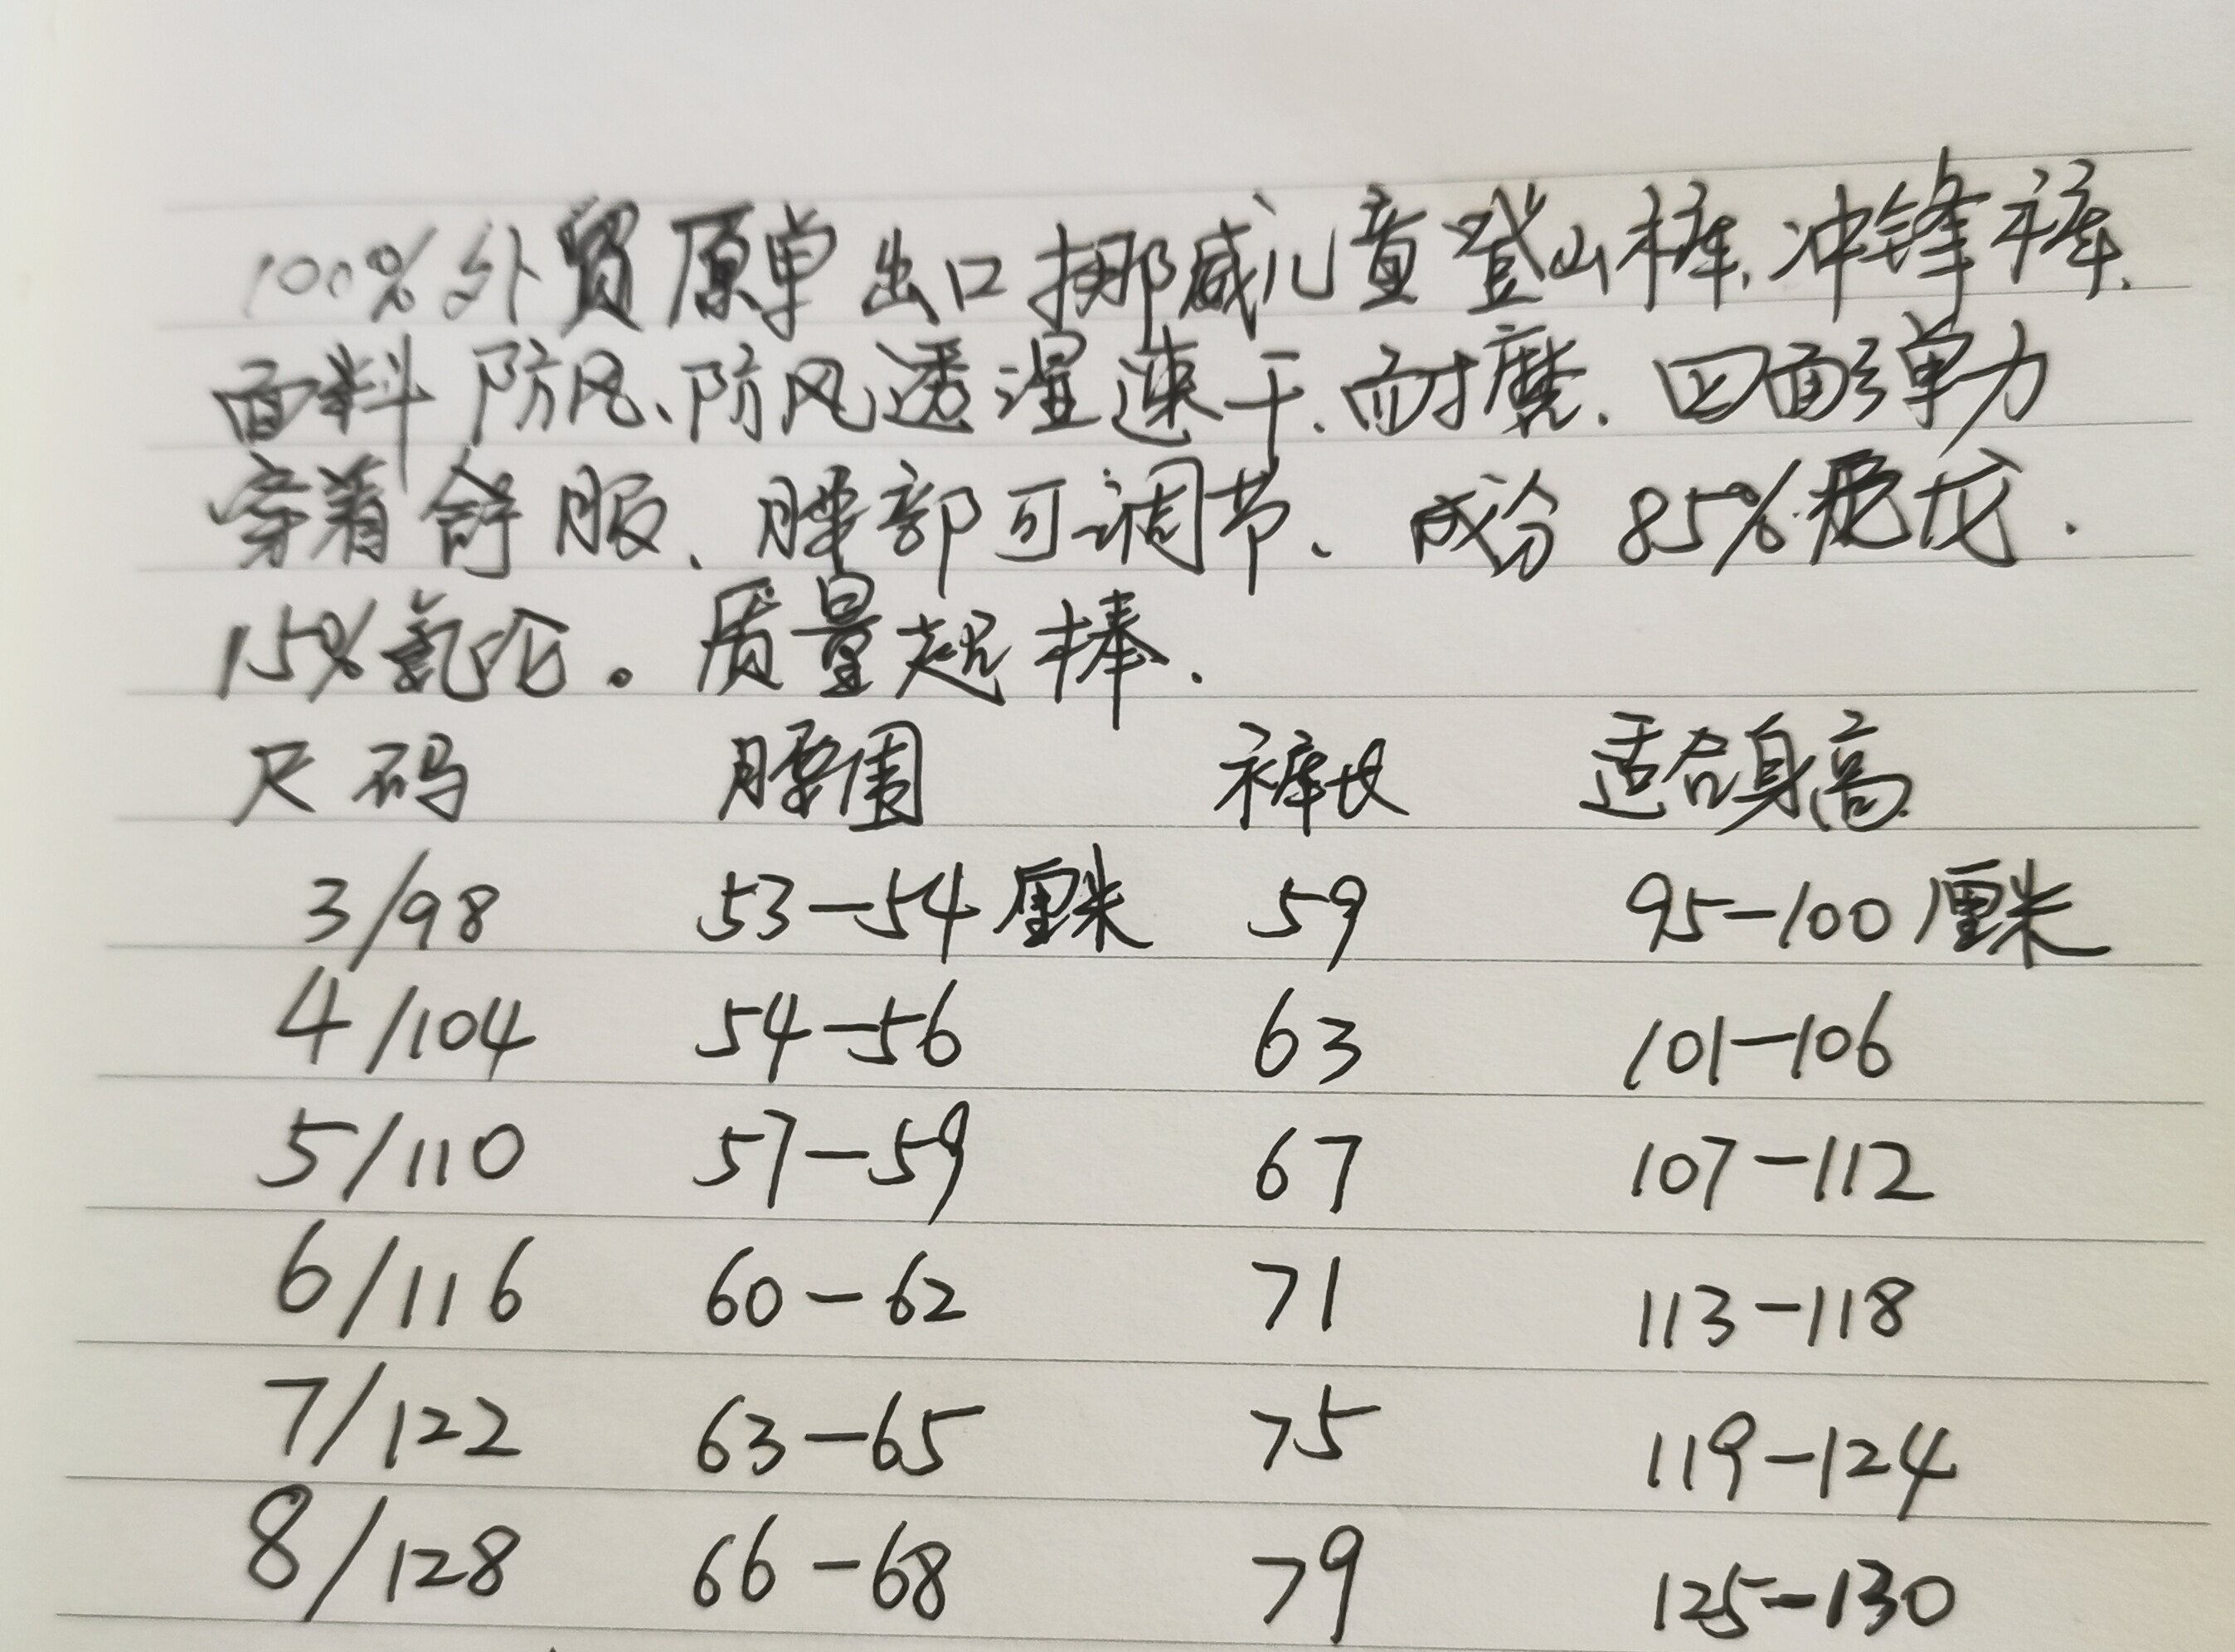 100%外贸原单出口挪威儿童登山裤、冲锋裤.
面料防风、防风透湿速干、耐磨.四面弹力
穿着舒服、腰部可调节、成分85%尼龙.
15%氨纶。质量超棒.
尺码 腰围 裤长 适合身高
3/98 53-54厘米 59 95-100厘米
4/104 54-56 63 101-106
5/110 57-59 67 107-112
6/116 60-62 71 113-118
7/122 63-65 75 119-124
8/128 66-68 79 125-130